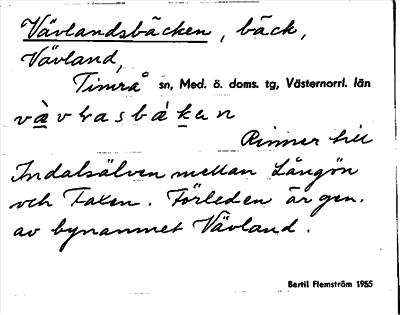 Vävlandsbäcken, bäck,
Vävland,
Timrå sn, Med. ö. doms. tg, Västernorrl. län
Rinner till
Indalsälven mellan Långön
och Faxen. Förleden är gen.
av bynamnet Vävland.
Bertil Flemström 1955